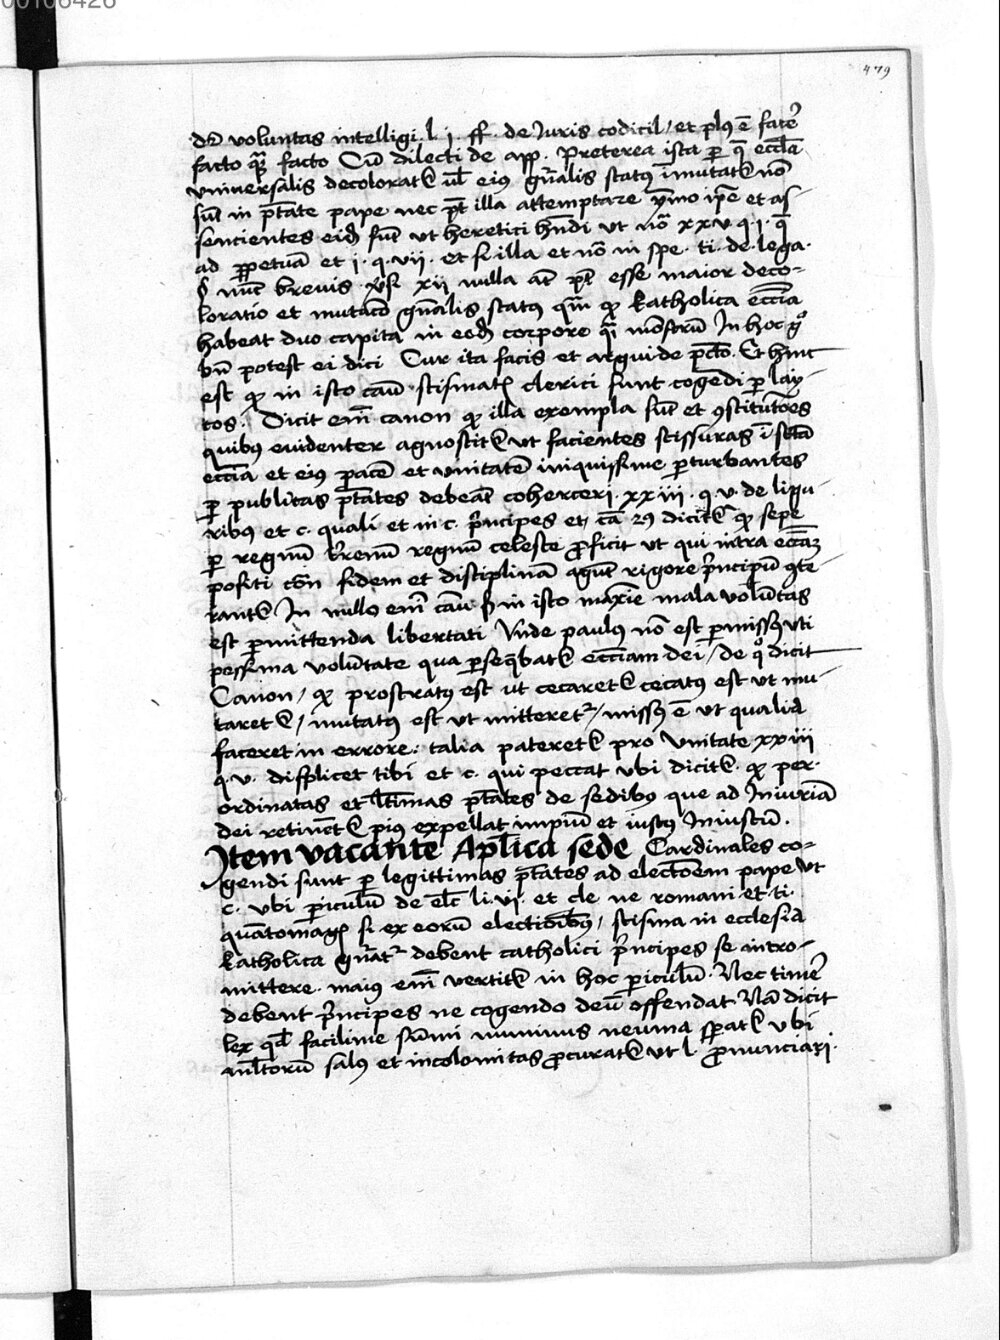 00106426
479
dr̄ voluntas intelligi . l . j . ff . de Iuris codicil / et plus ē facere
facto quā facto Cū dilecti de app . Preterea ista per q̄ eccl̄ia
vniuersalis decoloratur vl̄ eius gn̄alis status īmutatur nō
sūt in ptāte pape nec pōt illa attemptare ymo ip̄e et as-
sencientes eidē sūt vt heretici hn̄di ut no xxv q . j . q̄
ad ꝑpetuā et j . q . vij . et si illa et nō in spe . ti . de lega .
§ nūc breuis ꝟsi xij nulla aūt pōt esse maior deco-
loratio et mutacō gn̄alis status qm̄ ꝙ katholica eccīa
habeat duo capita in eodē corpore qī mōstrū In hoc gͦ
bn̄ potest ei dici Cur ita facis et argui de pctō . Et hinc
est ꝙ in isto cāu scismatis clerici sunt cogēdi per lay-
cos . Dicit em̄ canon ꝙ illa exempla sūt et ꝯstitutōes
quibus euidenter agnoscitur vt facientes scissuras ī sctā
eccīa et eius pacē et vnitatē iniquissime perturbantes
per publicas ptātes debeāt coherceri . xxiij . q v . de ligu-
ribus et c . quali et in c . principes et cā dicitur ꝙ sepe
per regnū t'renū regnū celeste proficit vt qui intra eccīaꝫ
positi cōn fidem et disciplinā agūt rigore principū ꝯte-
rantur In nullo em̄ cāu in isto maxīe mala volūtas
est permittenda libertati Vnde paulus nō est permissus vti
pessima volūtate qua persequebatur ecciam dei / de qͦ dicit
Canon / ꝙ prostratus est ut cecaretur cecatus est vt mu-
taretur / mutatus est vt mitteretur / missus ē vt qualia
faceret in errore : talia pateretur pro vnitate xxiij
q . v . displicet tibi et c . qui peccat vbi dicitur . ꝙ per .
ordinatas et ltīmas ptātes de sedibus que ad Iniuriā
dei retinētur pius expellat impiū et iustus Iniustū .
Item vacante Aplica sede Cardinales co-
gendi sunt per legittimas ptātes ad electōem pape vt
c . vbi periculū de elc̄ li . vj . et cle ne romani et ti .
quātomagis si ex eorū electiōibus / scisma in ecclesia
katholica gn̄atur debent catholici principes se intro-
mittere . maius em̄ vertitur in hoc periculū . Nec timere
debent principes ne cogendo deū offendat . Nā dicit
lex qd̄ facilime sūmi numinis neuma speratur vbi
ml̄torū salus et incolomitas procuratur vt l . pronunciari .